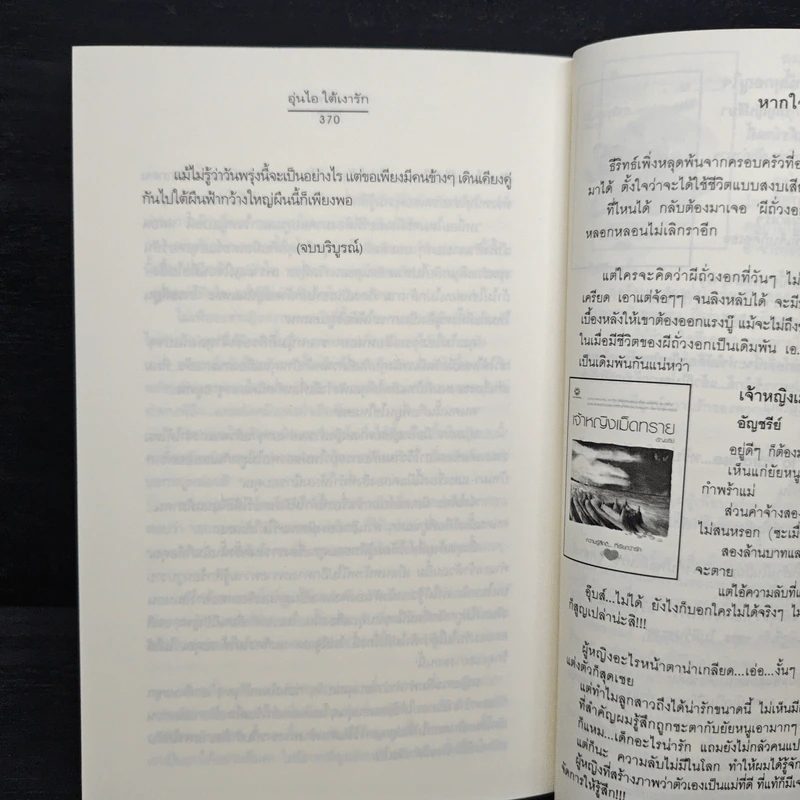 อุ่นไอ ใต้เงารัก
370
แม้ไม่รู้ว่าวันพรุ่งนี้จะเป็นอย่างไร แต่ขอเพียงมีคนข้างๆ เดินเคียงคู่
กันไปใต้ผืนฟ้ากว้างใหญ่ผืนนี้ก็เพียงพอ
(จบบริบูรณ์)
หากใ
ธีริทธ์เพิ่งหลุดพ้นจากครอบครัวที่
มาได้ ตั้งใจว่าจะได้ใช้ชีวิตแบบสงบเสี
ที่ไหนได้ กลับต้องมาเจอ 'ผีถั่วงอ
หลอกหลอนไม่เลิกราอีก
แต่ใครจะคิดว่าผีถั่วงอกที่วันๆ ไม่
เครียด เอาแต่จ้อๆๆ จนลิงหลับได้ จะมี
เบื้องหลังให้เขาต้องออกแรงบู๊ แม้จะไม่ถึง
ในเมื่อมีชีวิตของผีถั่วงอกเป็นเดิมพัน เอ..
เป็นเดิมพันกันแน่หว่า
เจ้าหญิงเม็ดทราย
อัญชรีย์
ความรู้สึกดี... ที่เรียกว่ารัก
เจ้าหญิงเ
อัญชรีย์
อยู่ดีๆ ก็ต้อง
เห็นแก่ยัยหนู
กำพร้าแม่
ส่วนค่าจ้างสอง
ไม่สนหรอก (ชะเมื
สองล้านบาทแล
จะตาย
แต่ไอ้ความลับที่
อุ๊บส์...ไม่ได้ ยังไงก็บอกใครไม่ได้จริงๆ
ก็สูญเปล่าน่ะสิ!!!
ผู้หญิงอะไรหน้าตาน่าเกลียด...เอ่อ...งั้นๆ
แต่งตัวก็สุดเชย
แต่ทำไมลูกสาวถึงได้น่ารักขนาดนี้ ไม่เห็นมี
ที่สำคัญผมรู้สึกถูกชะตากับยัยหนูเอามากๆ
ก็แหม...เด็กอะไรน่ารัก แถมยังไม่กลัวคนแป
แต่ก็นะ ความลับไม่มีในโลก ทำให้ผมได้รู้จัก
ผู้หญิงที่สร้างภาพว่าตัวเองเป็นแม่ที่ดี ที่แท้ก็มีเ
จัดการให้รู้สึก!!!